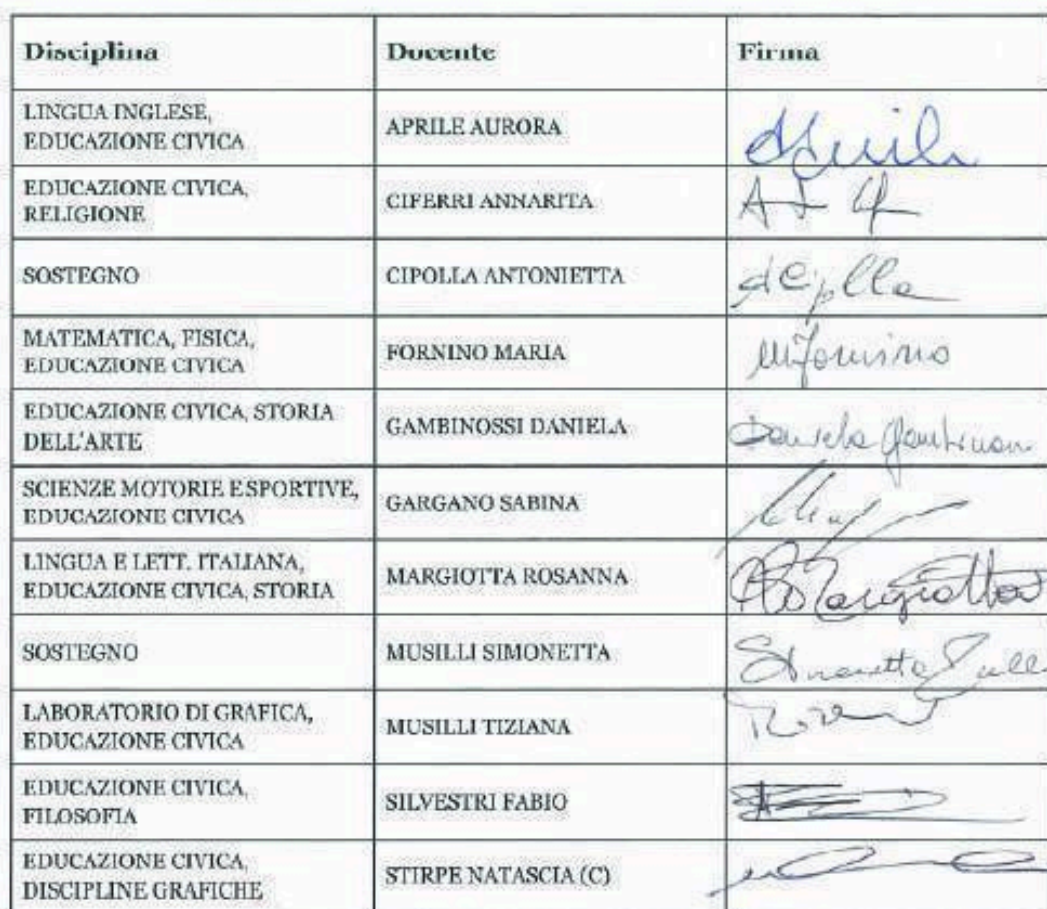 Disciplina Docente Firma
LINGUA INGLESE,
EDUCAZIONE CIVICA
APRILE AURORA
EDUCAZIONE CIVICA,
RELIGIONE
CIFERRI ANNARITA
SOSTEGNO
CIPOLLA ANTONIETTA
MATEMATICA, FISICA,
EDUCAZIONE CIVICA
FORNINO MARIA
EDUCAZIONE CIVICA, STORIA
DELL'ARTE
GAMBINOSSI DANIELA
Daniela
SCIENZE MOTORIE E SPORTIVE,
EDUCAZIONE CIVICA
GARGANO SABINA
LINGUA E LETT. ITALIANA,
EDUCAZIONE CIVICA, STORIA
MARGIOTTA ROSANNA
SOSTEGNO
MUSILLI SIMONETTA
Simonetta
LABORATORIO DI GRAFICA,
EDUCAZIONE CIVICA
MUSILLI TIZIANA
EDUCAZIONE CIVICA,
FILOSOFIA
SILVESTRI FABIO
EDUCAZIONE CIVICA,
DISCIPLINE GRAFICHE
STIRPE NATASCIA (C)